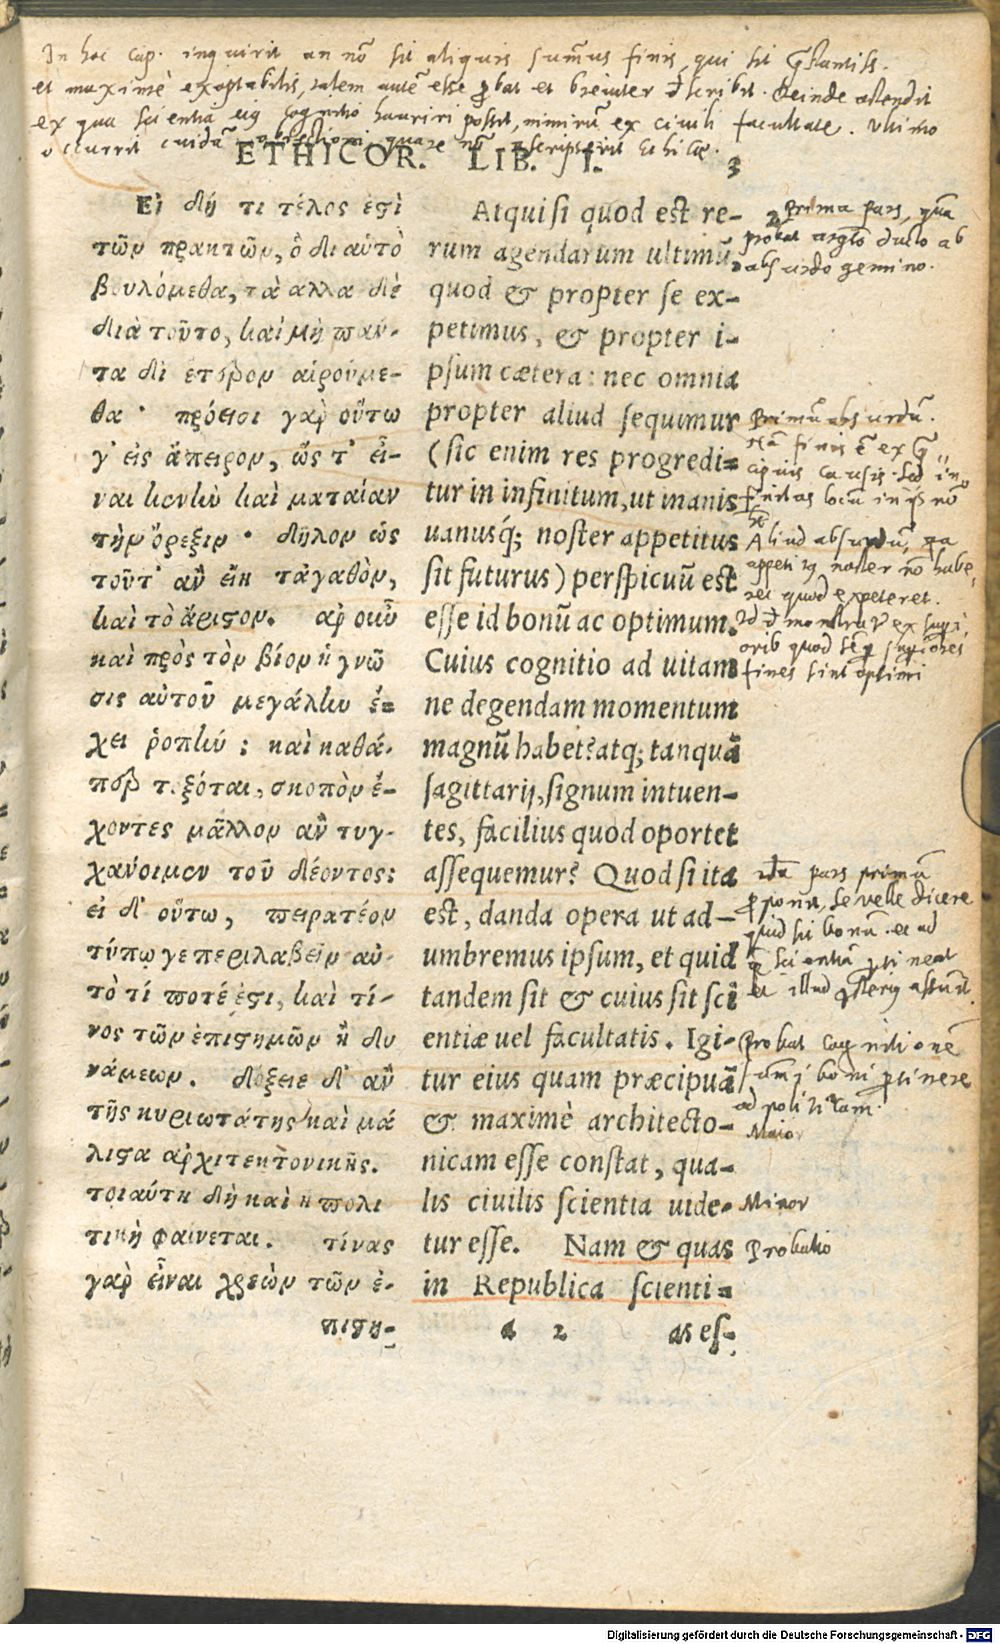 In hoc cap. inquirit an nō sit aliquis sum̄us finis, qui sit
et maximè exoptabilis, talem autē esse ꝓbat et breuiter describit. Deinde ostendit
ex qua scientia eiꝰ cognitio hauriri possit, nimirū ex ciuili facultate. Vltimo
occurrit cuidā obiectioni quare nō
ETHICOR. LIB. I. 3
Εἰ δή τι τέλος ἐϛὶ
τῶν πρακτῶν, ὃ δι αὑτὸ
βουλόμεθα, τὰ αλλα δὲ
διὰ τοῦτο, καὶ μὴ παν-
τα δι ἕτερον αἱρούμε-
θα · πρόεισι γαρ οὕτω
γ' εἰς ἄπειρον, ὥς τ' εἶ-
ναι κενὴν καὶ ματαίαν
τὴν ὄρεξιν · δῆλον ὡς
τοῦτ' αν εἴη τἀγαθὸν,
καὶ τὸ ἄριϛον. αρ οὖν
καὶ πρὸς τὸν βίον ἡ γνῶ
σις αὐτοῦ μεγάλην ἔ-
χει ῥοπὴν ; καὶ καθά-
περ τοξόται, σκοπὸν ἔ-
χοντες μᾶλλον αν τυγ-
χανοιμεν τοῦ δέοντος;
εἰ δ' οὕτω, πειρατέον
τύπῳ γε περιλαβεῖν αὐ-
τὸ τί ποτέ ἐϛι, καὶ τί-
νος τῶν ἐπιϛημῶν ἢ δυ
νάμεων. δόξειε δ' αν
τῆς κυριωτάτης καὶ μά
λιϛα αρχιτεκτονικῆς.
τοιαύτη δὴ καὶ ἡ πολι
τικὴ φαίνεται. τίνας
γαρ εἶναι χρεὼν τῶν ἐ-
πιϛη-
Atqui si quod est re-
rum agendarum ultimū,
quod & propter se ex-
petimus, & propter i-
psum cætera: nec omnia
propter aliud sequimur
(sic enim res progredi-
tur in infinitum, ut inanis
uanusq́; noster appetitus
sit futurus) perspicuū est
esse id bonū ac optimum.
Cuius cognitio ad uitam
ne degendam momentum
magnū habet? atq; tanquā
sagittarij, signum intuen-
tes, facilius quod oportet
assequemur? Quod si ita
est, danda opera ut ad-
umbremus ipsum, et quid
tandem sit & cuius sit sci
entiæ uel facultatis. Igi-
tur eius quam præcipuā
& maximè architecto-
nicam esse constat, qua-
lis ciuilis scientia uide-
tur esse. Nam & quas
in Republica scienti-
a 2 as es-
Prima pars, quā
probat argto ducto ab
absurdo gemino.
Primū absurdū.
finis ē ex
cipuis causis. Sed in
finitas locū in nō
Aliud absurdū, qa
appetitꝰ noster nō habe-
ret quod expeteret.
Id demonstratur ex supi
oribꝰ quod semꝑ supiores
fines sint optimi
pars primū
ꝓponit, se velle dicere
quid sit bonū. et ad
scientiā ꝑtineat
et illud
Probat cognitionē
sum̄i boni ꝑtinere
ad politicam.
Maior
Minor
Probatio
Digitalisierung gefördert durch die Deutsche Forschungsgemeinschaft - DFG